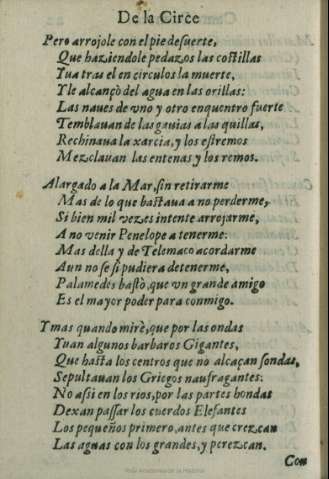 De la Circe
Pero arrojole con el pie de suerte,
Que haziendole pedazos las costillas
Yua tras el en circulos la muerte,
Y le alcançò del agua en las orillas:
Las naues de vno y otro enquentro fuerte
Temblauan de las gauias a las quillas,
Rechinaua la xarcia, y los estremos
Mezclauan las entenas y los remos.
Alargado a la Mar, sin retirarme
Mas de lo que bastaua a no perderme,
Si bien mil vezes intente arrojarme,
A no venir Penelope a tenerme:
Mas della y de Telemaco acordarme
Aun no se si pudiera detenerme,
Palamedes bastò, que vn grande amigo
Es el mayor poder para conmigo.
Y mas quando mirè, que por las ondas
Yuan algunos barbaros Gigantes,
Que hasta los centros que no alcaçan sondas,
Sepultauan los Griegos naufragantes:
No assi en los rios, por las partes hondas
Dexan passar los cuerdos Elefantes
Los pequeños primero, antes que crezcan
Las aguas con los grandes, y perezcan.
Con
Real Academia de la Historia